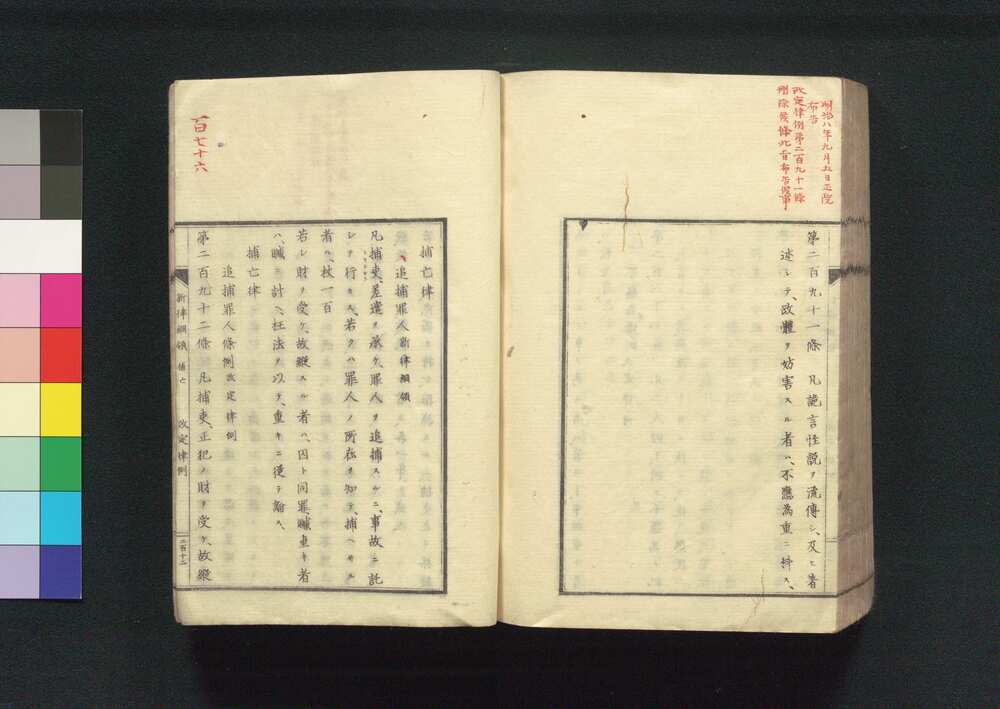 明治八年九月五日正院
布告
改定律例第二百九十一條
刪除候條此旨布告候事
第二百九十一條 凡訛言怪説ヲ流傳シ、及ヒ著
述シテ、政體ヲ妨害スル者ハ、不應為重ニ科ス、
百七十六
捕亡律
追捕罪人 新律綱領
凡捕吏、差遣ヲ承ケ、罪人ヲ追捕スルニ、事故ニ託
シテ行カス、若クハ罪人ノ所在ヲ知テ、捕ヘサル
者ハ、杖一百
若シ財ヲ受ケ、故縱スル者ハ、囚ト同罪、贓重キ者
ハ、贓ニ計ヘ、枉法ヲ以テ、重キニ從テ論ス、
捕亡律
追捕罪人條例 改定律例
第二百九十二條 凡捕吏、正犯ノ財ヲ受ケ、故縱
新律綱領 捕亡 改定律例 二百十二